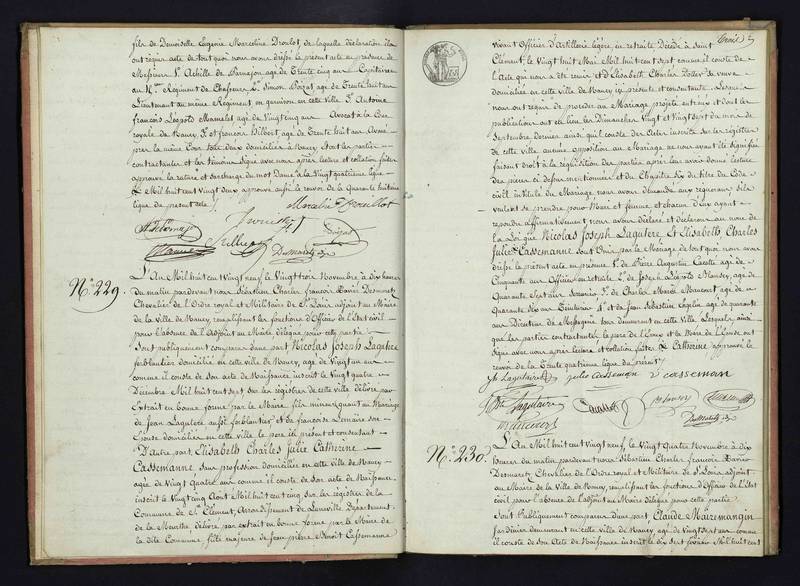 fils de Demoiselle Eugénie Marceline Droulot, de laquelle déclaration ils
ont requis acte de tout quoi nous avons dressé le présent acte en présence de
Messieurs Sr Achille de Barnajon agé de Trente cinq ans Capitaine
au 14me Régiment de Chasseurs Sr Simon Poizat agé de Trente huit ans
Lieutenant au même Régiment en garnison en cette ville Sr Antoine
François Léopold Mamelet agé de Vingt cinq ans Avocat à la Cour
royale de Nancy Sr et françois Hilbert agé de Trente huit ans
par la même Cour tous deux domiciliés à Nancy et ont les parties
contractantes et les témoins signé avec nous après lecture et collation faites
approuvé la rature et surcharge du mot Dame à la Vingt quatrième ligne
Mil huit cent Vingt deux approuvé aussi le renvoi de la Quarante huitième
ligne du présent acte
Desmaretz
No. 229.
L'An Mil huit cent Vingt neuf le Vingt trois Novembre à dix heures
du matin pardevant nous Sébastien Charles françois Xavier Desmaretz
Chevalier de l'Ordre royal et Militaire de St Louis adjoint au Maire
de la Ville de Nancy remplissant les fonctions d'Officier de l'Etat civil
pour l'absence de l'Adjoint au Maire délégué pour cette partie
Sont publiquement comparus d'une part Nicolas Joseph Lagutere
ferblantier domicilié en cette ville de Nancy, agé de Vingt un ans
comme il conste de son acte de Naissance inscrit le Vingt quatre
Décembre Mil huit cent sept sur les régistres de cette ville délivré par
Extrait en bonne forme par le Maire fils mineur quant au Mariage
de Jean Lagutere aussi ferblantier et de françoise Lemoine son
Epouse domiciliés en cette ville le père ici présent et consentant
D'autre part Elisabeth Charles Julie Catherine
Cassemanne sans profession domiciliée en cette ville de Nancy
agée de Vingt Quatre ans comme il conste de son acte de Naissance
inscrit le Vingt cinq Août Mil huit cent cinq sur les régistres de la
Commune de St Clément, Arrondissement de Lunéville Département
de la Meurthe délivré par extrait en bonne forme par le Maire de
la dite Commune, fille majeure de Jean pierre Benoit Cassemanne
vivant Officier d'Artillerie légère, en retraite Décédé à Saint
Clément, le Vingt huit Mai Mil huit cent sept comme il conste de
l'Acte qui nous a été remis et d'Elisabeth Charles Zoller sa veuve
domiciliée en cette ville de Nancy ici présente et consentante Lesquels
nous ont requis de procéder au Mariage projeté entre eux et dont les
publications ont eu lieu les Dimanches Vingt et Vingt sept du mois de
Septembre dernier ainsi qu'il conste des Actes inscrits sur les régistres
de cette ville aucune opposition au Mariage ne nous ayant été signifiée
faisant droit à la réquisition des parties après leur avoir donné lecture
des pièces ci dessus mentionnées et du Chapitre Six du titre du Code
civil intitulé du Mariage nous avons demandé aux réquérans s'ils
veulent se prendre pour Mari et femme, et chacun d'eux ayant
répondu affirmativement nous avons déclaré et déclarons au nom de
la Loi que Nicolas Joseph Lagutere Et Elisabeth Charles
Julie Cassemanne sont Unis par le Mariage de tout quoi nous avons
dressé le présent acte en présence Sr de Pierre Augustin Cacotte agé de
Cinquante ans Officier en retraite Sr de Joseph Léopold Mansuy, agé de
Quarante Sept ans Sr de Charles Marie Maucourt agé de
Quarante dix ans Teinturier Sr et de Jean Sébastien Lagelin agé de quarante
ans Directeur de Messagerie tous demeurant en cette Ville Lesquels, ainsi
que les parties contractantes le père de l'Epoux et la Mère de l'Epouse ont
signé avec nous après lecture et collation faites Catherine approuvé le
renvoi de la Trente quatrième ligne du présent
julie casseman v casseman
Desmaretz
No. 230.
L'An Mil huit cent Vingt neuf, le Vingt quatre Novembre à dix
heures du matin pardevant nous Sébastien Charles françois Xavier
Desmaretz Chevalier de l'Ordre royal et Militaire de St Louis adjoint
au Maire de la Ville de Nancy, remplissant les fonctions d'Officier de l'Etat
civil pour l'absence de l'adjoint au Maire délégué pour cette partie
Sont Publiquement comparus d'une part Claude Mairemangin
Jardinier demeurant en cette ville de Nancy agé de Vingt sept ans comme
il conste de son Acte de Naissance inscrit le dix sept février Mil huit cent